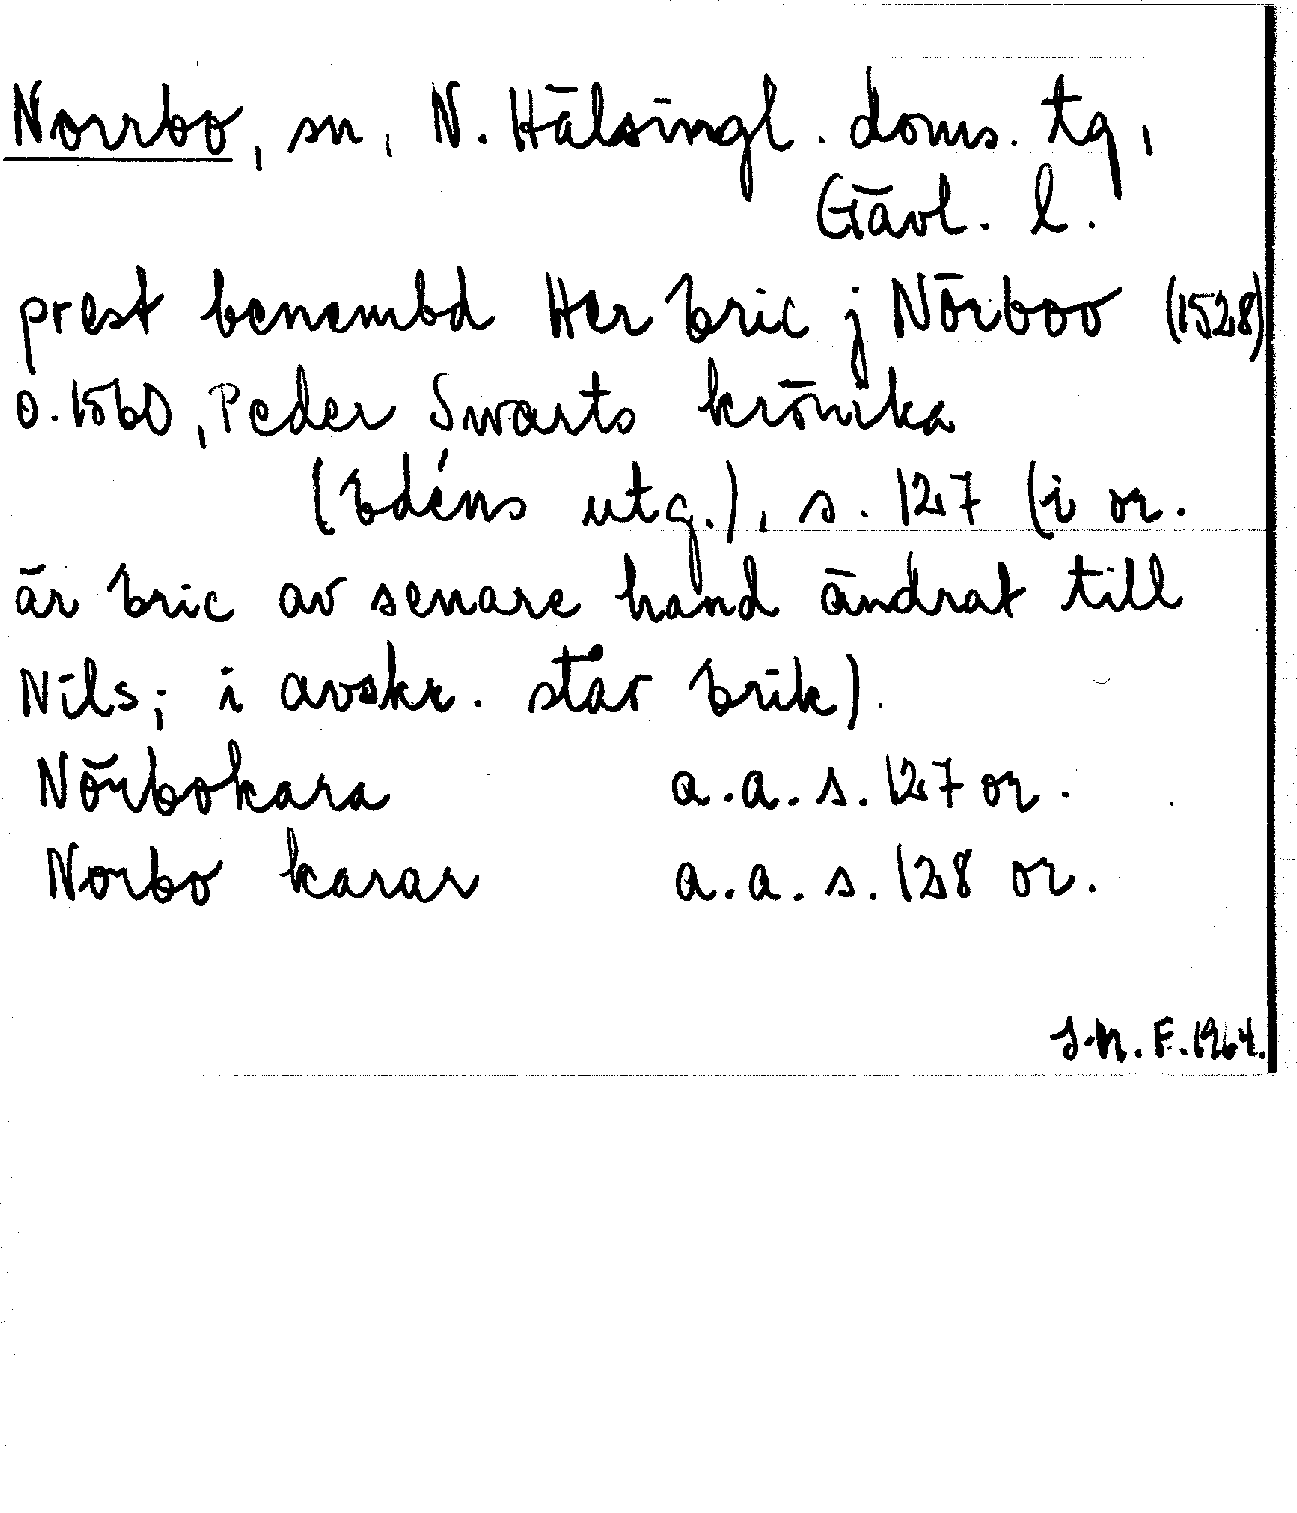 Norrbo, sn, N. Hälsingl. doms. tg,
Gävl. l.
prest benembd Her Eric j Nörboo (1528)
o. 1560, Peder Swarts krönika
(Edéns utg.), s. 127 (i or.
är Eric av senare hand ändrat till
Nils; i avskr. står Erik).
Nörbokara a.a. s. 127 or.
Norbo karar a.a. s. 128 or.
S.N.F. 1964.